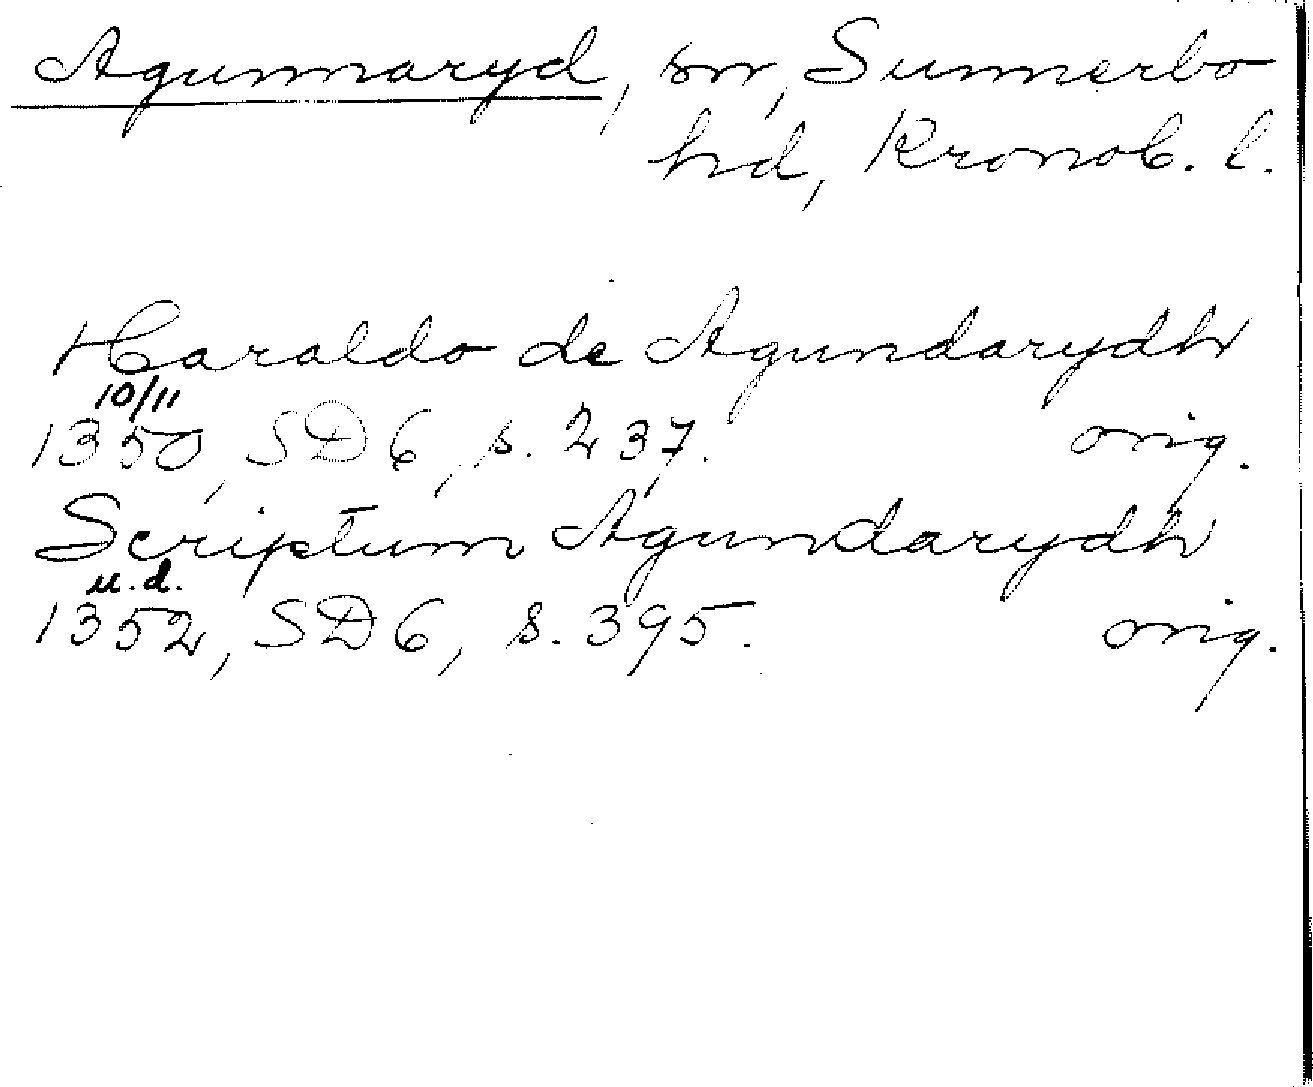 Agunnaryd, sn, Sunnerbo
hd, Kronob. l.
Haraldo de Agundarydh
10/11
1350, SD 6, s. 237. orig.
Scriptum Agundarydh
u.d.
1352, SD 6, s. 395. orig.